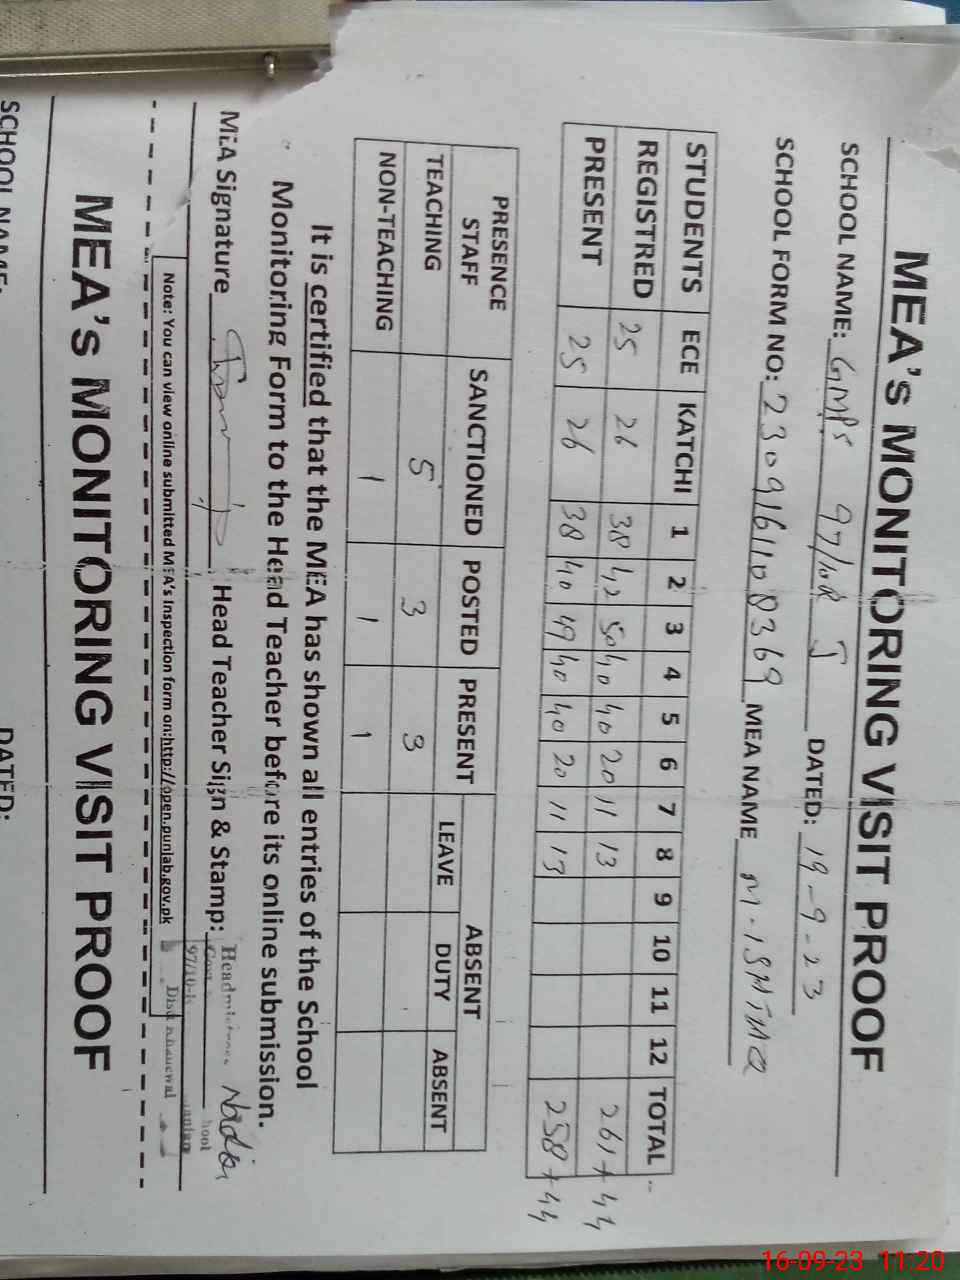 MEA's MONITORING VISIT PROOF
SCHOOL NAME: GMPS 97/10R J DATED: 19-9-23
SCHOOL FORM NO: 2309161108369 MEA NAME M.
STUDENTS ECE KATCHI 1 2 3 4 5 6 7 8 9 10 11 12 TOTAL
REGISTRED 25 26 38 42 50 40 40 20 11 13 261+44
PRESENT 25 26 38 40 49 40 40 20 11 13 258+44
PRESENCE STAFF SANCTIONED POSTED PRESENT ABSENT
LEAVE DUTY ABSENT
TEACHING 5 3 3
NON-TEACHING 1 1 1
It is certified that the MEA has shown all entries of the School
Monitoring Form to the Head Teacher before its online submission.
MEA Signature Head Teacher Sign & Stamp:
Note: You can view online submitted MEA's Inspection form on:http://open.punjab.gov.pk
MEA's MONITORING VISIT PROOF
SCHOOL NAME: DATED:
16-09-23 11:20